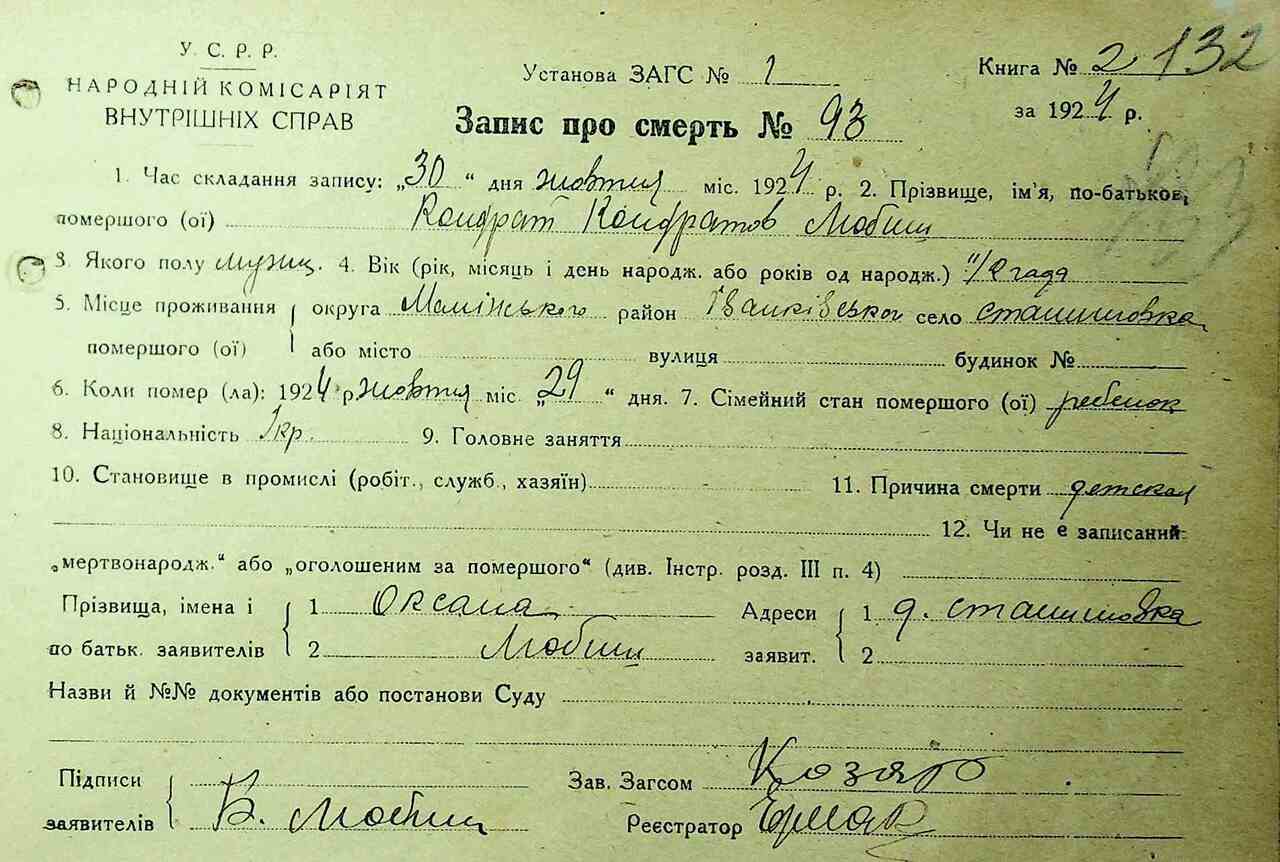 У. С. Р. Р.
НАРОДНІЙ КОМІСАРІЯТ
ВНУТРІШНІХ СПРАВ
Установа ЗАГС № 1
Книга № 2 132
за 1924 р.
Запис про смерть № 93
1. Час складання запису: „30 “ дня жовтня міс. 1924 р. 2. Прізвище, ім'я, по-батькові
помершого (ої) Кондрат Кондратов Любиш
3. Якого полу мужич. 4. Вік (рік, місяць і день народж. або років од народж.) 1/2 года
5. Місце проживання округа Малінського район Іванківського село Сташишовка
помершого (ої) або місто вулиця будинок №
6. Коли помер (ла): 1924 р. жовтня міс. „29 “ дня. 7. Сімейний стан помершого (ої) ребенок
8. Національність Укр. 9. Головне заняття
10. Становище в промислі (робіт., служб., хазяїн) 11. Причина смерти детская
12. Чи не є записаний
„мертвонародж.“ або „оголошеним за помершого“ (див. Інстр. розд. III п. 4)
Прізвища, імена і 1 Оксана Адреси 1 д. Сташишовка
по батьк. заявителів 2 Любиш заявит. 2
Назви й №№ документів або постанови Суду
Підписи Зав. Загсом Козяр
заявителів К. Любиш Реєстратор Ермак